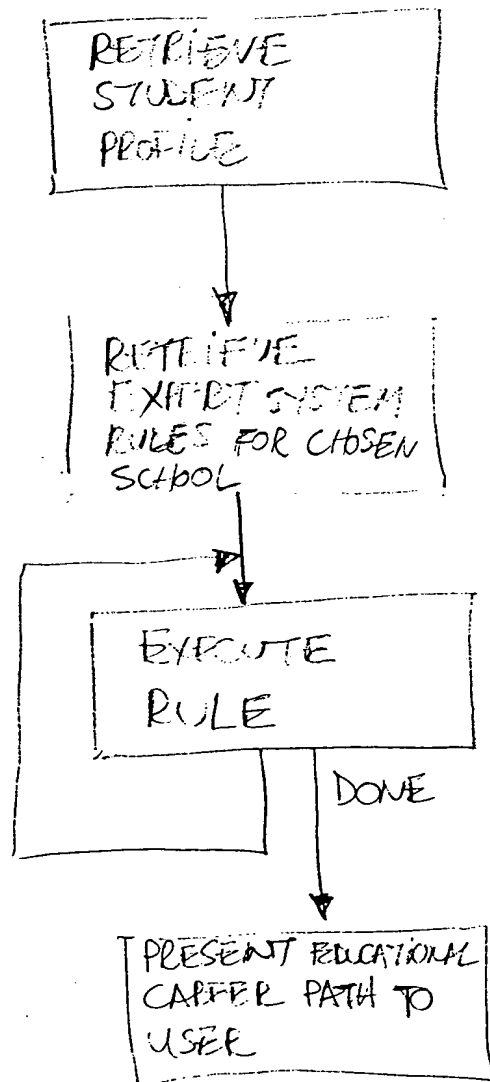 RETRIEVE
STUDENT
PROFILE
RETRIEVE
EXPERT SYSTEM
RULES FOR CHOSEN
SCHOOL
EXECUTE
RULE
DONE
PRESENT EDUCATIONAL
CAREER PATH TO
USER